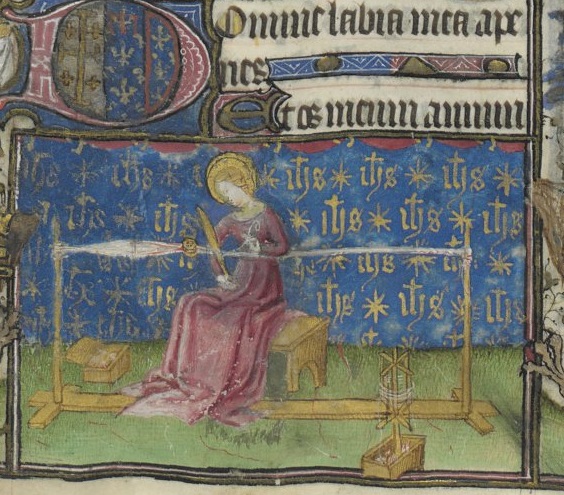 DOmine labia mea ape
ries
Et os meum annun
ihs ihs ihs ihs ihs
ihs ihs ihs ihs ihs
ihs ihs
ihs ihs ihs ihs